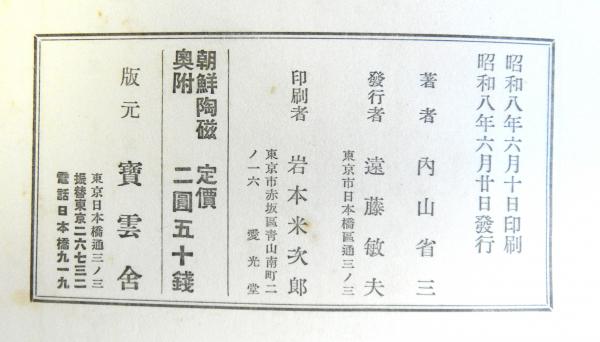 昭和八年六月十日印刷
昭和八年六月廿日發行
著者 內山省三
發行者 遠藤敏夫
東京市日本橋區通三ノ三
印刷者 岩本米次郎
東京市赤坂區青山南町二
ノ一六 愛光堂
朝鮮陶磁
奧附
定價
二圓五十錢
版元 寶雲舍
東京日本橋通三ノ三
振替東京二六七三二
電話日本橋九一九